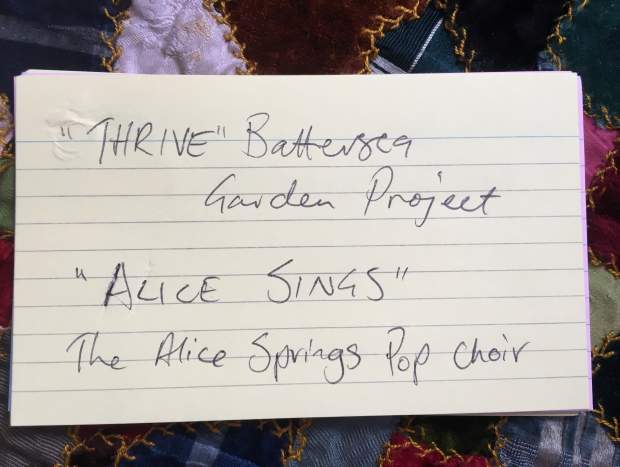 "THRIVE" Battersea
Garden Project
"ALICE SINGS"
The Alice Springs Pop Choir